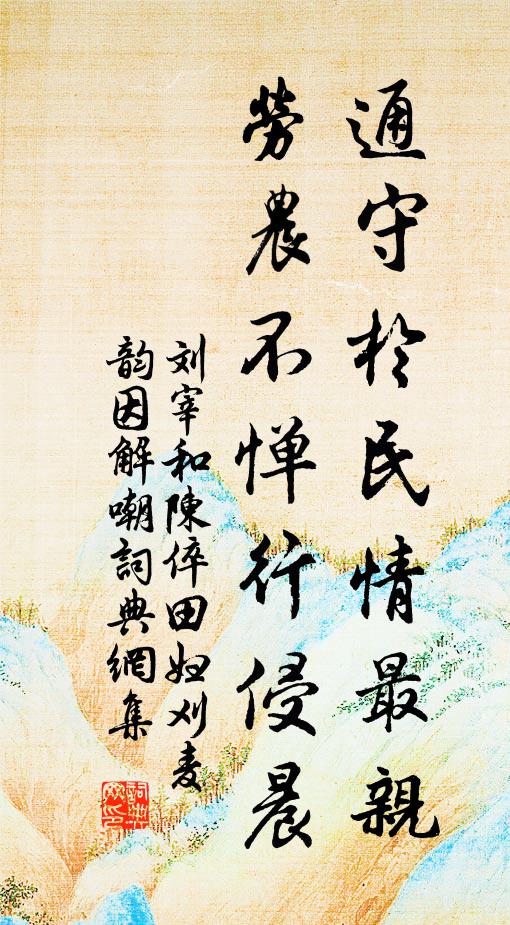 通守於民情最親
勞農不惮行侵晨
刘宰和陳倅田妇刈麦
韵因解嘲詞典網集